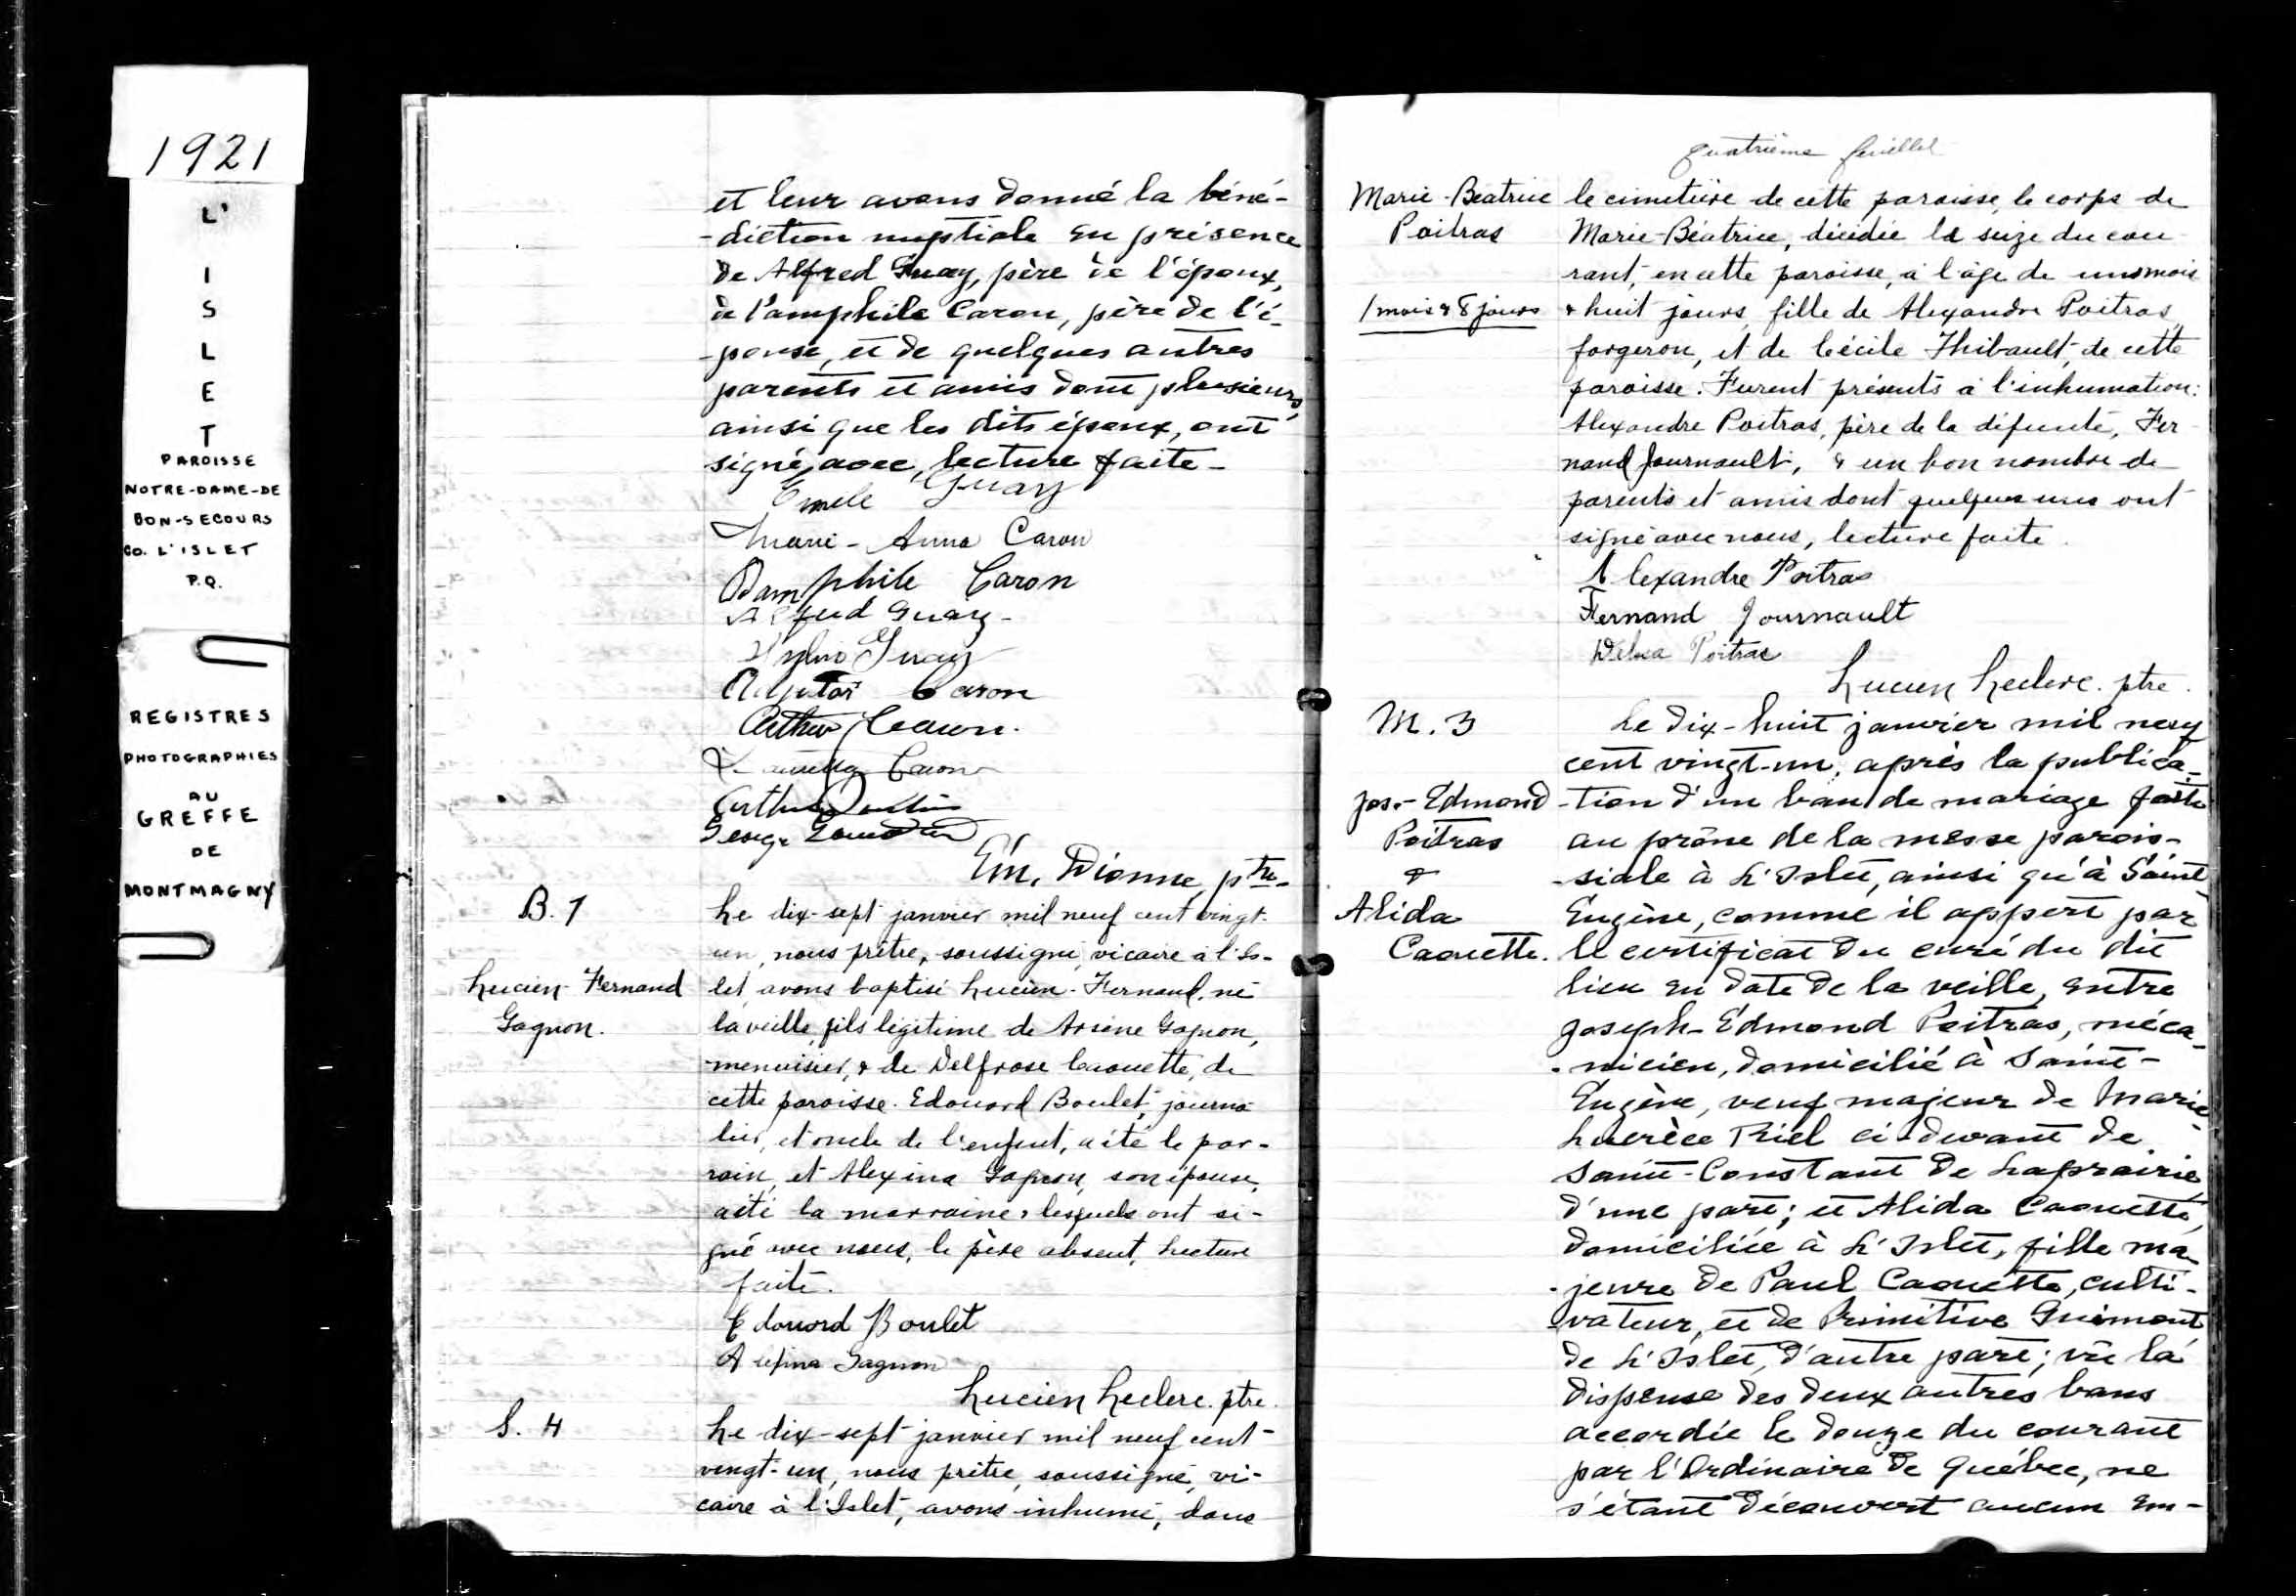 1921
L'
I
S
L
E
T
PAROISSE
NOTRE-DAME-DE
BON-SECOURS
CO. L'ISLET
P.Q.
REGISTRES
PHOTOGRAPHIES
AU
GREFFE
DE
MONTMAGNY
et leur avons donné la béné-
-diction nuptiale en présence
de Alfred Guay, père de l'époux,
de Pamphile Caron, père de l'é-
-pouse, et de quelques autres
parents et amis dont plusieurs,
ainsi que les dits époux, ont
signé, avec, lecture faite-
Emile Guay
Marie-Anna Caron
Pamphile Caron
Alfred Guay-
Sylvio Guay
Caron
Arthur Caron.
Caron
Arthur
George
Em. Dionne ptre-
B. 7
Lucien-Fernand
Gagnon.
Le dix-sept janvier mil neuf cent vingt-
un, nous prêtre, soussigné, vicaire à l'Is-
let, avons baptisé Lucien-Fernand, né
la veille, fils légitime de Arsène Gagnon,
menuisier, & de Delfrose Caouette, de
cette paroisse. Edouard Boulet, journa
lier, et oncle de l'enfant, a été le par-
rain, et Alexina Gagnon, son épouse,
a été la marraine, lesquels ont si-
gné avec nous, le père absent, Lecture
faite.
Edouard Boulet
Alexina Gagnon
Lucien Leclerc. ptre.
S. 4
Le dix-sept janvier mil neuf cent-
vingt-un, nous prêtre, soussigné, vi-
caire à l'Islet, avons inhumé, dans
quatrième feuillet
Marie-Béatrice
Poitras
1 mois & 8 jours
le cimetière de cette paroisse, le corps de
Marie-Béatrice, décédée le seize du cou
rant, en cette paroisse, à l'âge de un mois
& huit jours, fille de Alexandre Poitras,
forgeron, et de Cécile Thibault, de cette
paroisse. Furent présents à l'inhumation:
Alexandre Poitras, père de la défunte, Fer
nand Journault, & un bon nombre de
parents et amis dont quelques uns ont
signé avec nous, lecture faite.
Alexandre Poitras
Fernand Journault
Poitras
Lucien Leclerc. ptre.
M. 3
Jos.-Edmond
Poitras
&
Alida
Caouette.
Le dix-huit janvier mil neuf
cent vingt-un, après la publica-
-tion d'un ban de mariage faite
au prône de la messe parois-
-siale à L'Islet, ainsi qu'à Saint-
Eugène, comme il appert par
le certificat du curé du dit
lieu en date de la veille, entre
Joseph-Edmond Poitras, méca-
-nicien, domicilié à Saint-
Eugène, veuf majeur de Marie-
Lucrèce Riel ci-devant de
Saint-Constant de Laprairie,
d'une part; et Alida Caouette,
domiciliée à L'Islet, fille ma-
-jeure de Paul Caouette, culti-
-vateur, et de Primitive Guimont
de L'Islet, d'autre part; vu la
dispense des deux autres bans
accordée le douze du courant
par l'Ordinaire de Québec, ne
s'étant découvert aucun em-